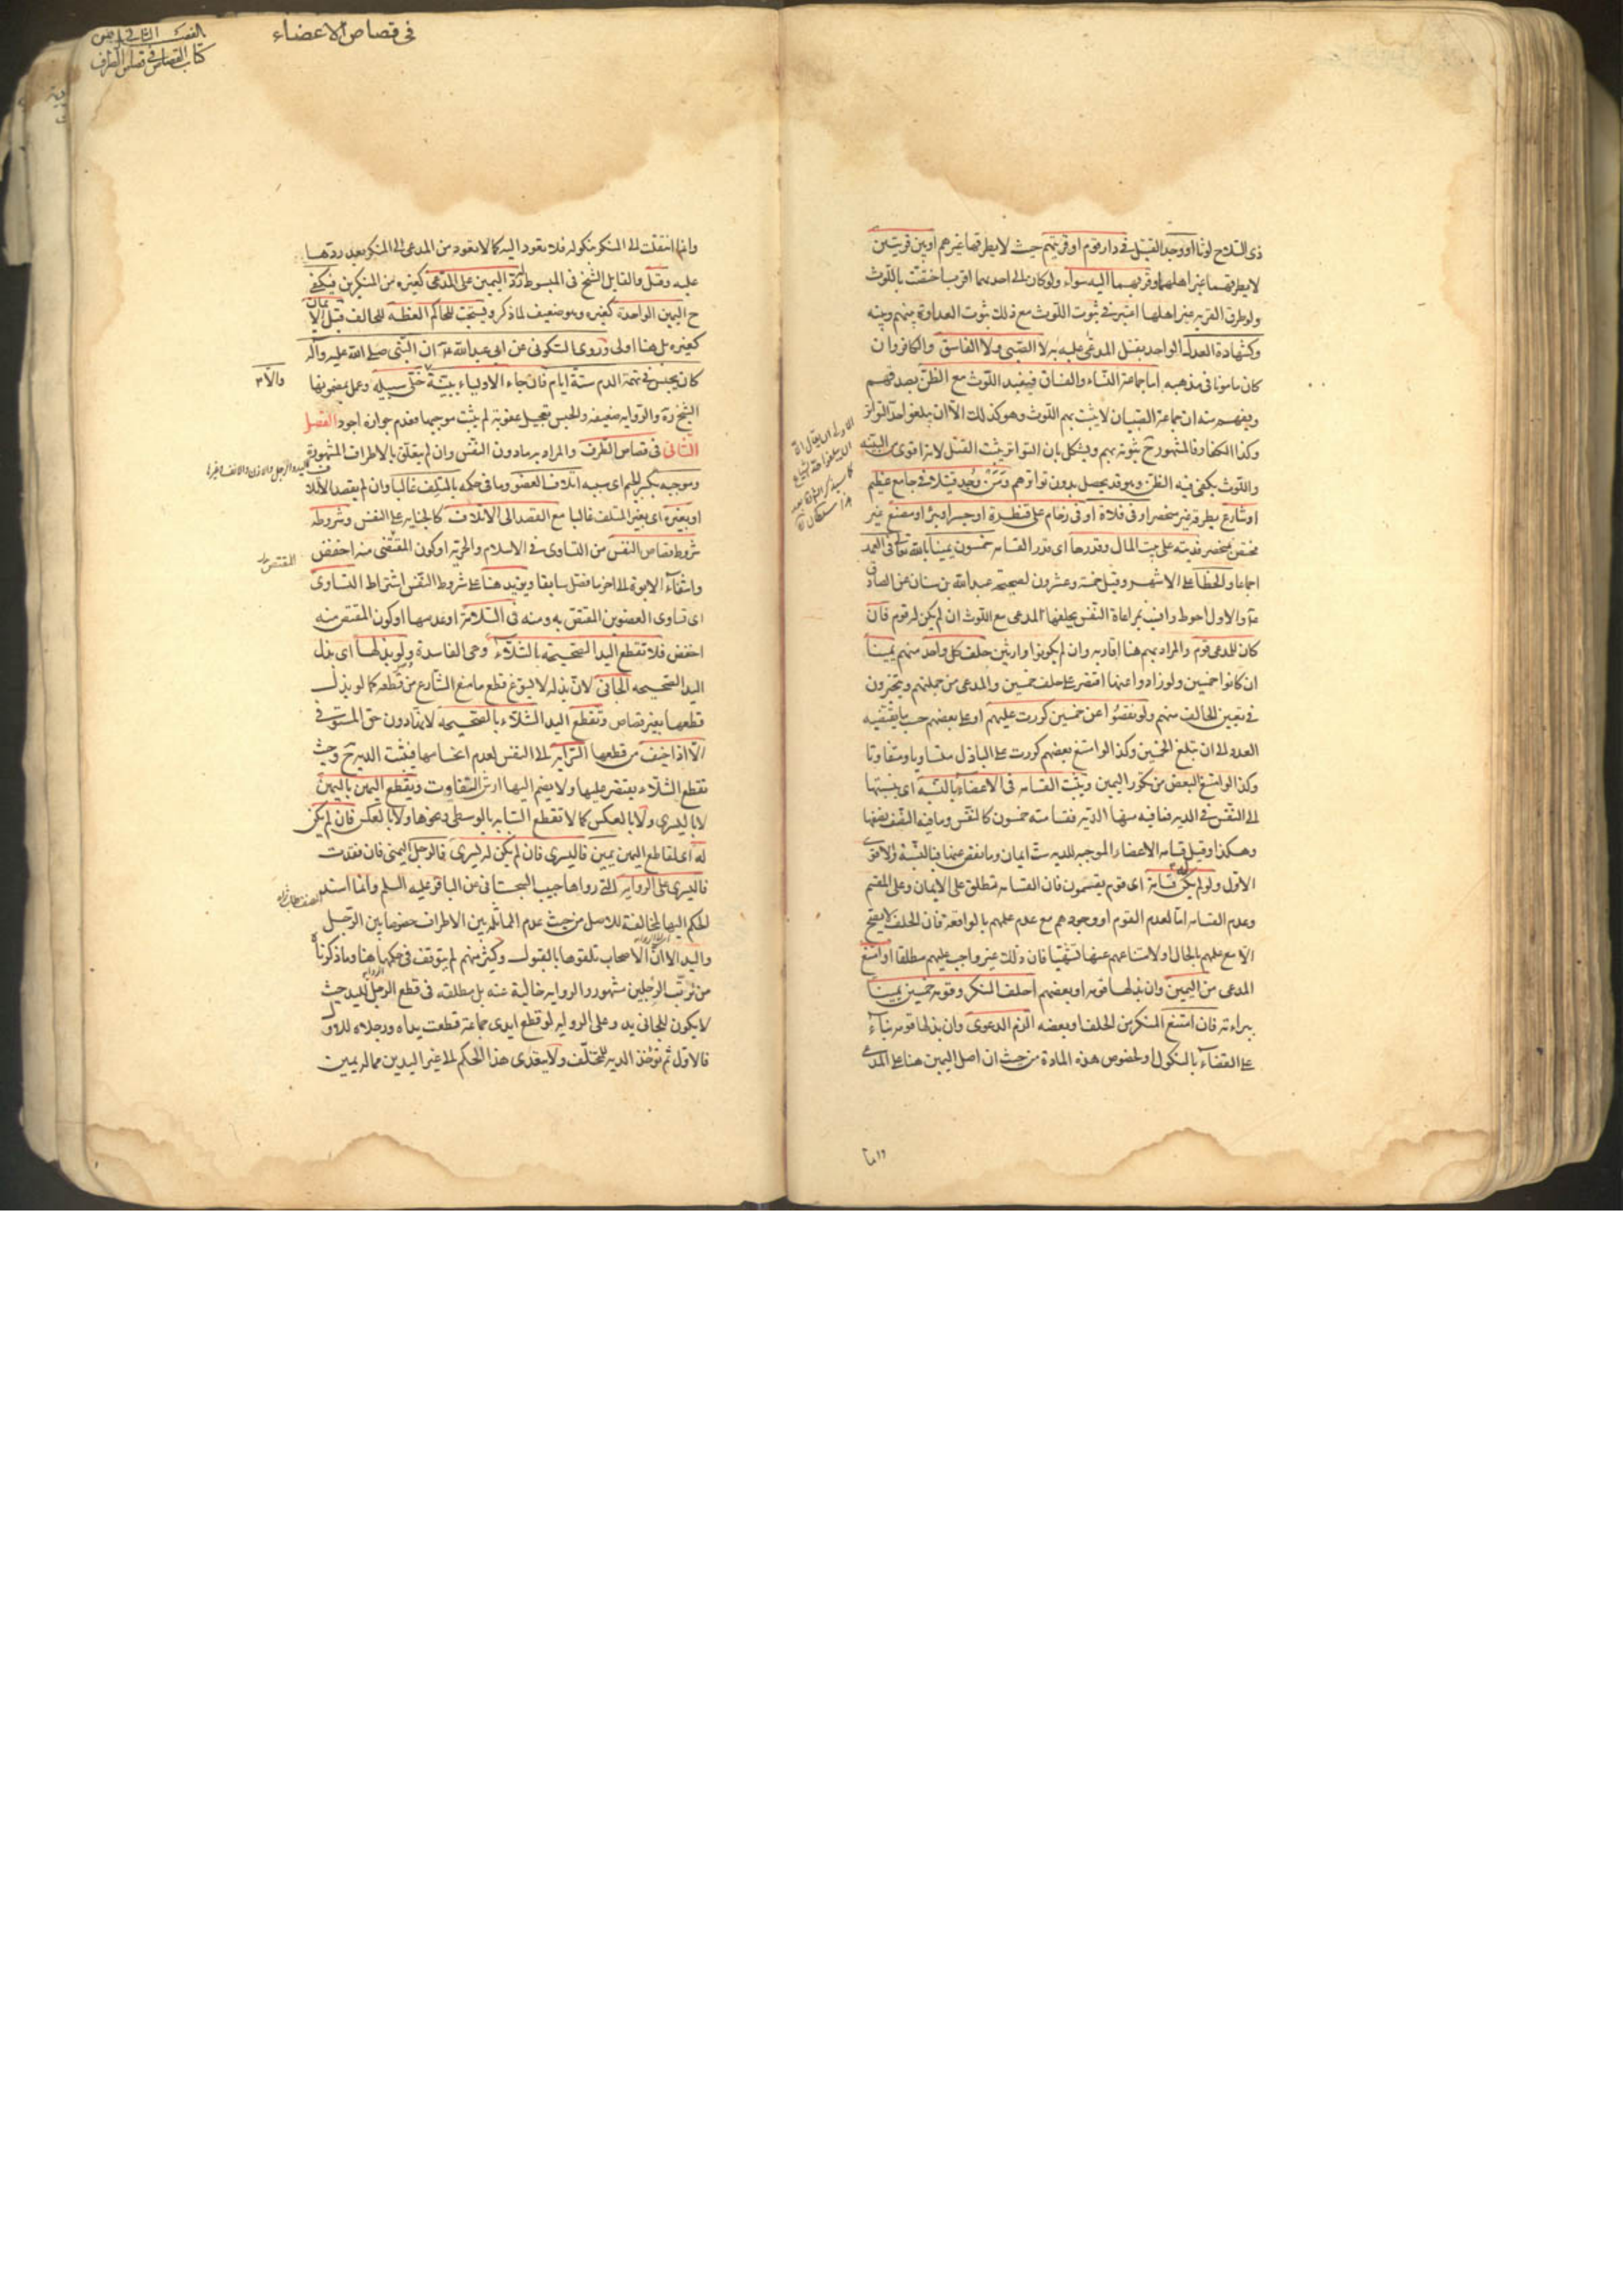 ذى السلاح لوثا او وجد القتيل فى دار قوم او قريتهم حيث لا يطرقها غيرهم او بين قريتين
لا يطرقهما غير اهلهما وقربهما اليه سواء ولو كان الى احديهما اقرب اختصت باللوث
ولو طرق القرية غير اهلها اعتبر فى ثبوت اللوث مع ذلك ثبوت العداوة بينهم وبينه
وكشهادة العدل الواحد بقتل المدعى عليه به لا الصبى ولا الفاسق والكافر وان
كان مامونا فى مذهبه اما جماعة النساء والفساق فيفيد اللوث مع الظن بصدقهم
ويفهم منه ان جماعة الصبيان لا يثبت بهم اللوث وهو كذلك الا ان يبلغوا حد التواتر
وكذا الكفار والمشهور ح ثبوته بهم ويشكل بان التواتر يثبت القتل لانه اقوى من البينة
واللوث يكفى فيه الظن وهو قد يحصل بدون تواترهم ومن وجد قتيلا فى جامع عظيم
او شارع يطرقه غير منحصر او فى فلاة او فى زحام على قنطرة او جسر او بئر او مصنع غير
مختص بمنحصر فديته على بيت المال وقدرها اى قدر القسامة خمسون يمينا بالله تعالى فى العمد
اجماعا والخطأ على الاشهر وقيل خمسة وعشرون لصحيحة عبد الله بن سنان عن الصادق
ع والاول احوط وانسب بمراعاة النفس يحلفها المدعى مع اللوث ان لم يكن له قوم فان
كان للمدعى قوم والمراد بهم هنا اقاربه وان لم يكونوا وارثين حلف كل واحد منهم يمينا
ان كانوا خمسين ولو زادوا عنها اقتصر على حلف خمسين والمدعى من جملتهم ويتخيرون
فى تعيين الحالف منهم ولو نقصوا عن خمسين كررت عليهم او على بعضهم حسبما يقتضيه
العدد الى ان تبلغ الخمسين وكذا لو امتنع بعضهم كررت على الباذل متساويا ومتفاوتا
وكذا لو امتنع البعض من تكرير اليمين ويثبت القسامة فى الاعضاء بالنسبة اى بنسبتها
الى النفس فى الدية فما فيه منها الدية فقسامته خمسون كالنفس وما فيه النصف نصفها
وهكذا وقيل قسامة الاعضاء الموجبة للدية ست ايمان وما نقص عنها فبالنسبة والاقوى
الاول ولو لم يكن له قسامة اى قوم يقسمون فان القسامة تطلق على الايمان وعلى المقسم
وعدم القسامة اما لعدم القوم او وجودهم مع عدم علمهم بالواقعة فان الحلف لا يصح
الا مع علمهم بالحال او لامتناعهم عنها تشهيا فان ذلك غير واجب عليهم مطلقا او امتنع
المدعى من اليمين وان بذلها قومه او بعضهم احلف المنكر وقومه خمسين يمينا
ببراءته فان امتنع المنكر من الحلف او بعضه الزم الدعوى وان بذلها قومه بناء
على القضاء بالنكول او لخصوص هذه المادة من حيث ان اصل اليمين هنا على المدعى
فى قصاص الاعضاء
الفصل الثانى من
كتاب القصاص فى قصاص الطرف
وانما انتقلت الى المنكر بنكوله فلا يعود اليه كما لا يعود من المدعى الى المنكر بعد ردها
عليه وقيل والقايل الشيخ فى المبسوط له رد اليمين على المدعى كغيره من المنكرين فيكفى
ح اليمين الواحدة كغيره وهو ضعيف لما ذكر ويستحب للحاكم العظة للحالف قبل الايمان
كغيره بل هنا اولى وروى السكونى عن ابى عبد الله ع ان النبى صلى الله عليه وآله
كان يحبس فى تهمة الدم ستة ايام فان جاء الاولياء ببينة والا خلى سبيله وعمل بمضمونها
الشيخ ره والرواية ضعيفة والحبس تعجيل عقوبة لم يثبت موجبها فعدم جوازه اجود الفصل
الثانى فى قصاص الطرف والمراد به ما دون النفس وان لم يتعلق بالاطراف المشهورة
وموجبه بكسر الجيم اى سببه اتلاف العضو وما فى حكمه بالمتلف غالبا وان لم يقصد الاتلاف
او بغيره اى بغير المتلف غالبا مع القصد الى الاتلاف كالجناية على النفس وشروطه
شروط قصاص النفس من التساوى فى الاسلام والحرية او كون المقتص منه اخفض
وانتفاء الابوة الى اخر ما فصل سابقا ويزيد هنا على شروط النفس اشتراط التساوى
اى تساوى العضوين المقتص به ومنه فى السلامة او عدمها او كون المقتص منه
اخفض فلا تقطع اليد الصحيحة بالشلاء وهى الفاسدة ولو بذلها اى بذل
اليد الصحيحة الجانى لان بذله لا يسوغ قطع ما منع الشارع من قطعه كما لو بذل
قطعها بغير قصاص وتقطع اليد الشلاء بالصحيحة لانها دون حق المستوفى
الا اذا خيف من قطعها السراية الى النفس لعدم انحسامها فيثبت الدية ح وحيث
تقطع الشلاء يقتصر عليها ولا يضم اليها ارش التفاوت ويقطع اليمين باليمين
لا باليسرى ولا بالعكس كما لا تقطع السبابة بالوسطى ونحوها ولا بالعكس فان لم يكن
له اى لقاطع اليمين يمين فاليسرى فان لم يكن له يسرى فالرجل اليمنى فان فقدت
فاليسرى على الرواية التى رواها حبيب السجستانى عن الباقر عليه السلم وانما اسند
الحكم اليها لمخالفته للاصل من حيث عدم المماثلة بين الاطراف خصوصا بين الرجل
واليد الا ان الاصحاب تلقوها بالقبول وكثير منهم لم يتوقف فى حكمها هنا وما ذكرناه
من ترتب الرجلين مشهور والرواية خالية عنه بل مطلقة فى قطع الرجل لليد حيث
لا يكون للجانى يد وعلى الرواية لو قطع ايدى جماعة قطعت يداه ورجلاه للاول
فالاول ثم تؤخذ الدية للمتخلف ولا يتعدى هذا الحكم الى غير اليدين مما له يمين